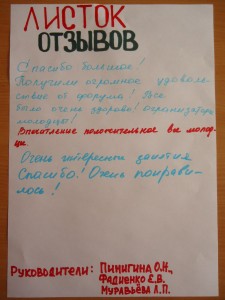 ЛИСТОК
ОТЗЫВОВ
Спасибо большое!
Получили огромное удоволь
ствие от форума! Все
было очень здорово! организаторы
молодцы!
Впечатление положительное вы молод-
цы.
Очень интересные занятия
Спасибо! Очень понрави-
лось!
Руководители: Пинигина О.Н.,
Фадиенко Е.В.
Муравьёва Л.П.